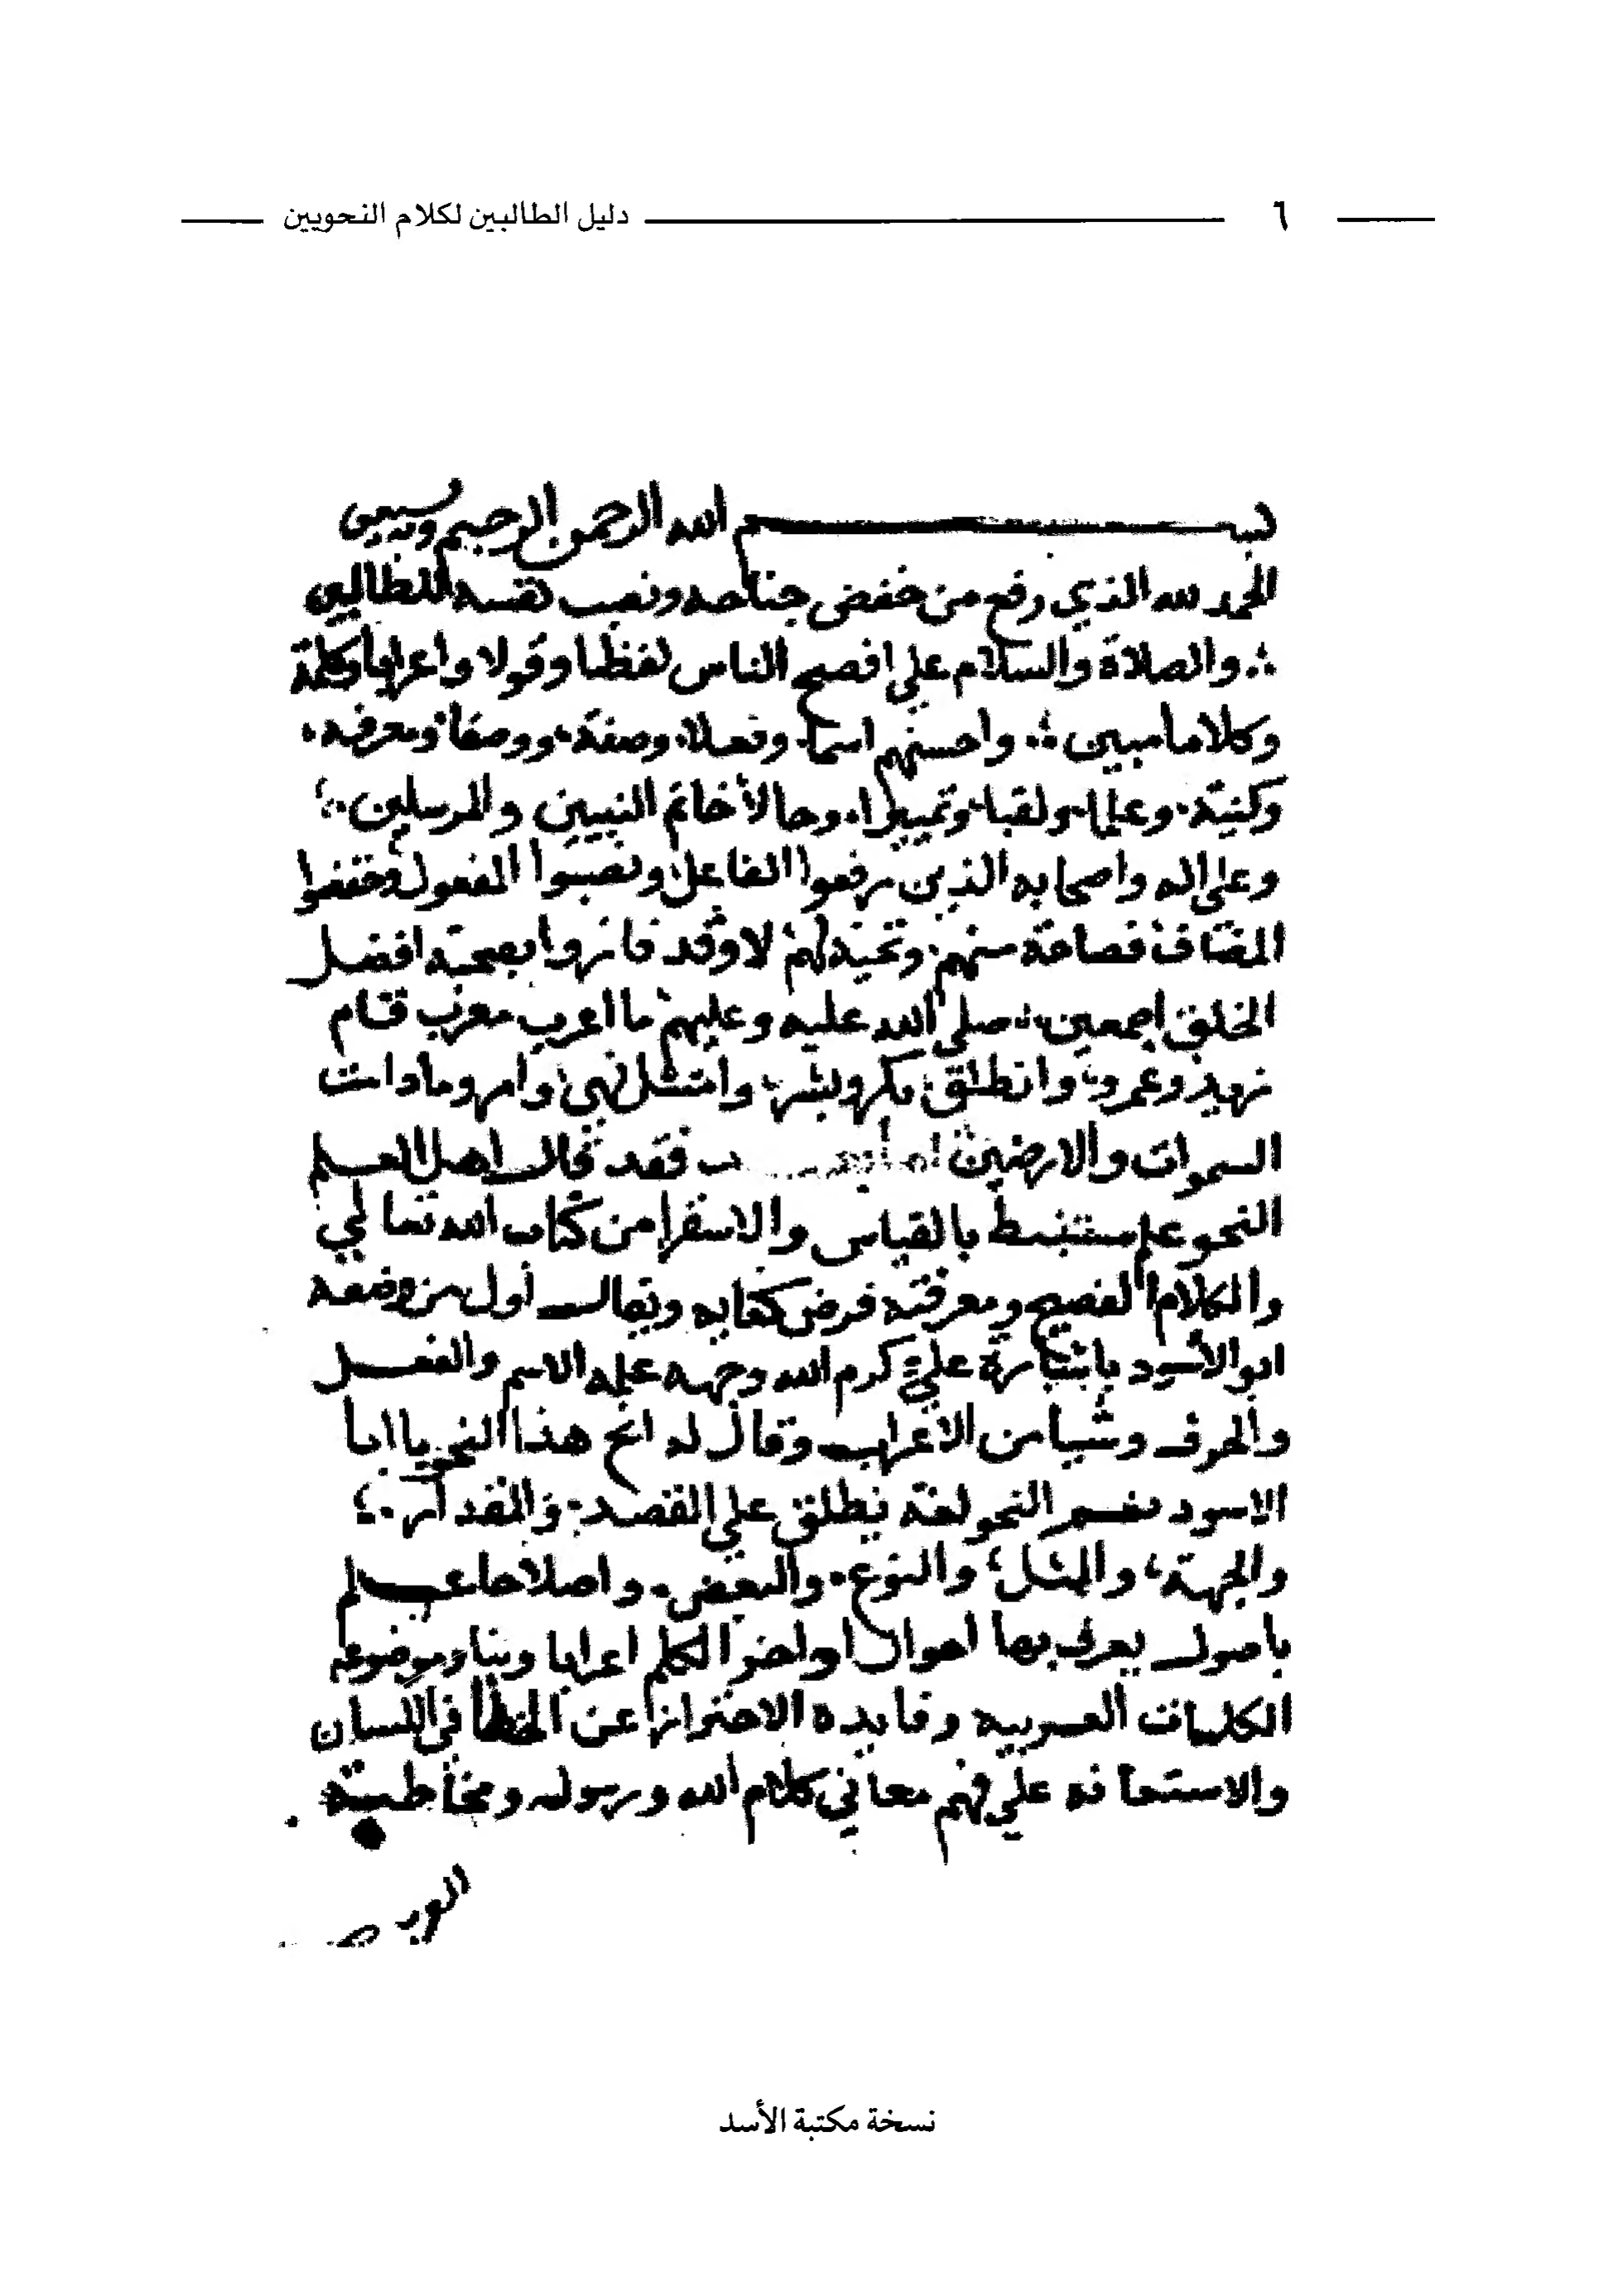 ٦ دليل الطالبين لكلام النحويين
بسم الله الرحمن الرحيم وبه نستعين
الحمد لله الذي رفع من خفض جناحه ونصب نفسه للطالبين
والصلاة والسلام علي افصح الناس لفظا وقولا واعرابا وكلمة
وكلاما مبين واحسنهم اسما وفعلا وصفة ووصفا ومعرفه
وكنية وعلما ولقبا وتمييزا وحالا خاتم النبيين والمرسلين
وعلي اله واصحابه الذين رفعوا الفاعل ونصبوا المفعول وخفضوا
المضاف فصاحة منهم لا وقد فازوا بصحبة افضل
الخلق اجمعين صلي الله عليه وعليهم ما اعرب معرب قام
زيد وعمرو وانطلق بكر وبشر وامتثل نهي وامر ومادامت
السموات والارضين فقد قال اهل العلم
النحو علم مستنبط بالقياس والاستقرا من كتاب الله تعالي
والكلام الفصيح ومعرفته فرض كفايه ويقال أول من وضعه
ابو الأسود باشارة علي كرم الله وجهه علمه الاسم والفعل
والحرف وشيا من الاعراب وقال له انح هذا النحو يا ابا
الاسود النحو لغة يطلق علي القصد والمقدار
والجهة والمثل والنوع والبعض واصلاحا علم
باصول يعرف بها احوال اواخر الكلم اعرابا وبنا وموضوعه
الكلمات العربيه وفايده الاحتراز عن الخطأ في اللسان
والاستعانه علي فهم معاني كلام الله ورسوله ومخاطبة
نسخة مكتبة الأسد